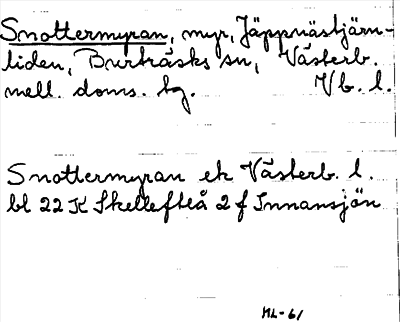 Snottermyran, myr, Jäppnästjärn-
liden, Burträsks sn, Västerb.
mell. doms. tg. Vb. l.
Snottermyran ek Västerb. l.
bl 22 K Skellefteå 2 f Innansjön
ML-61